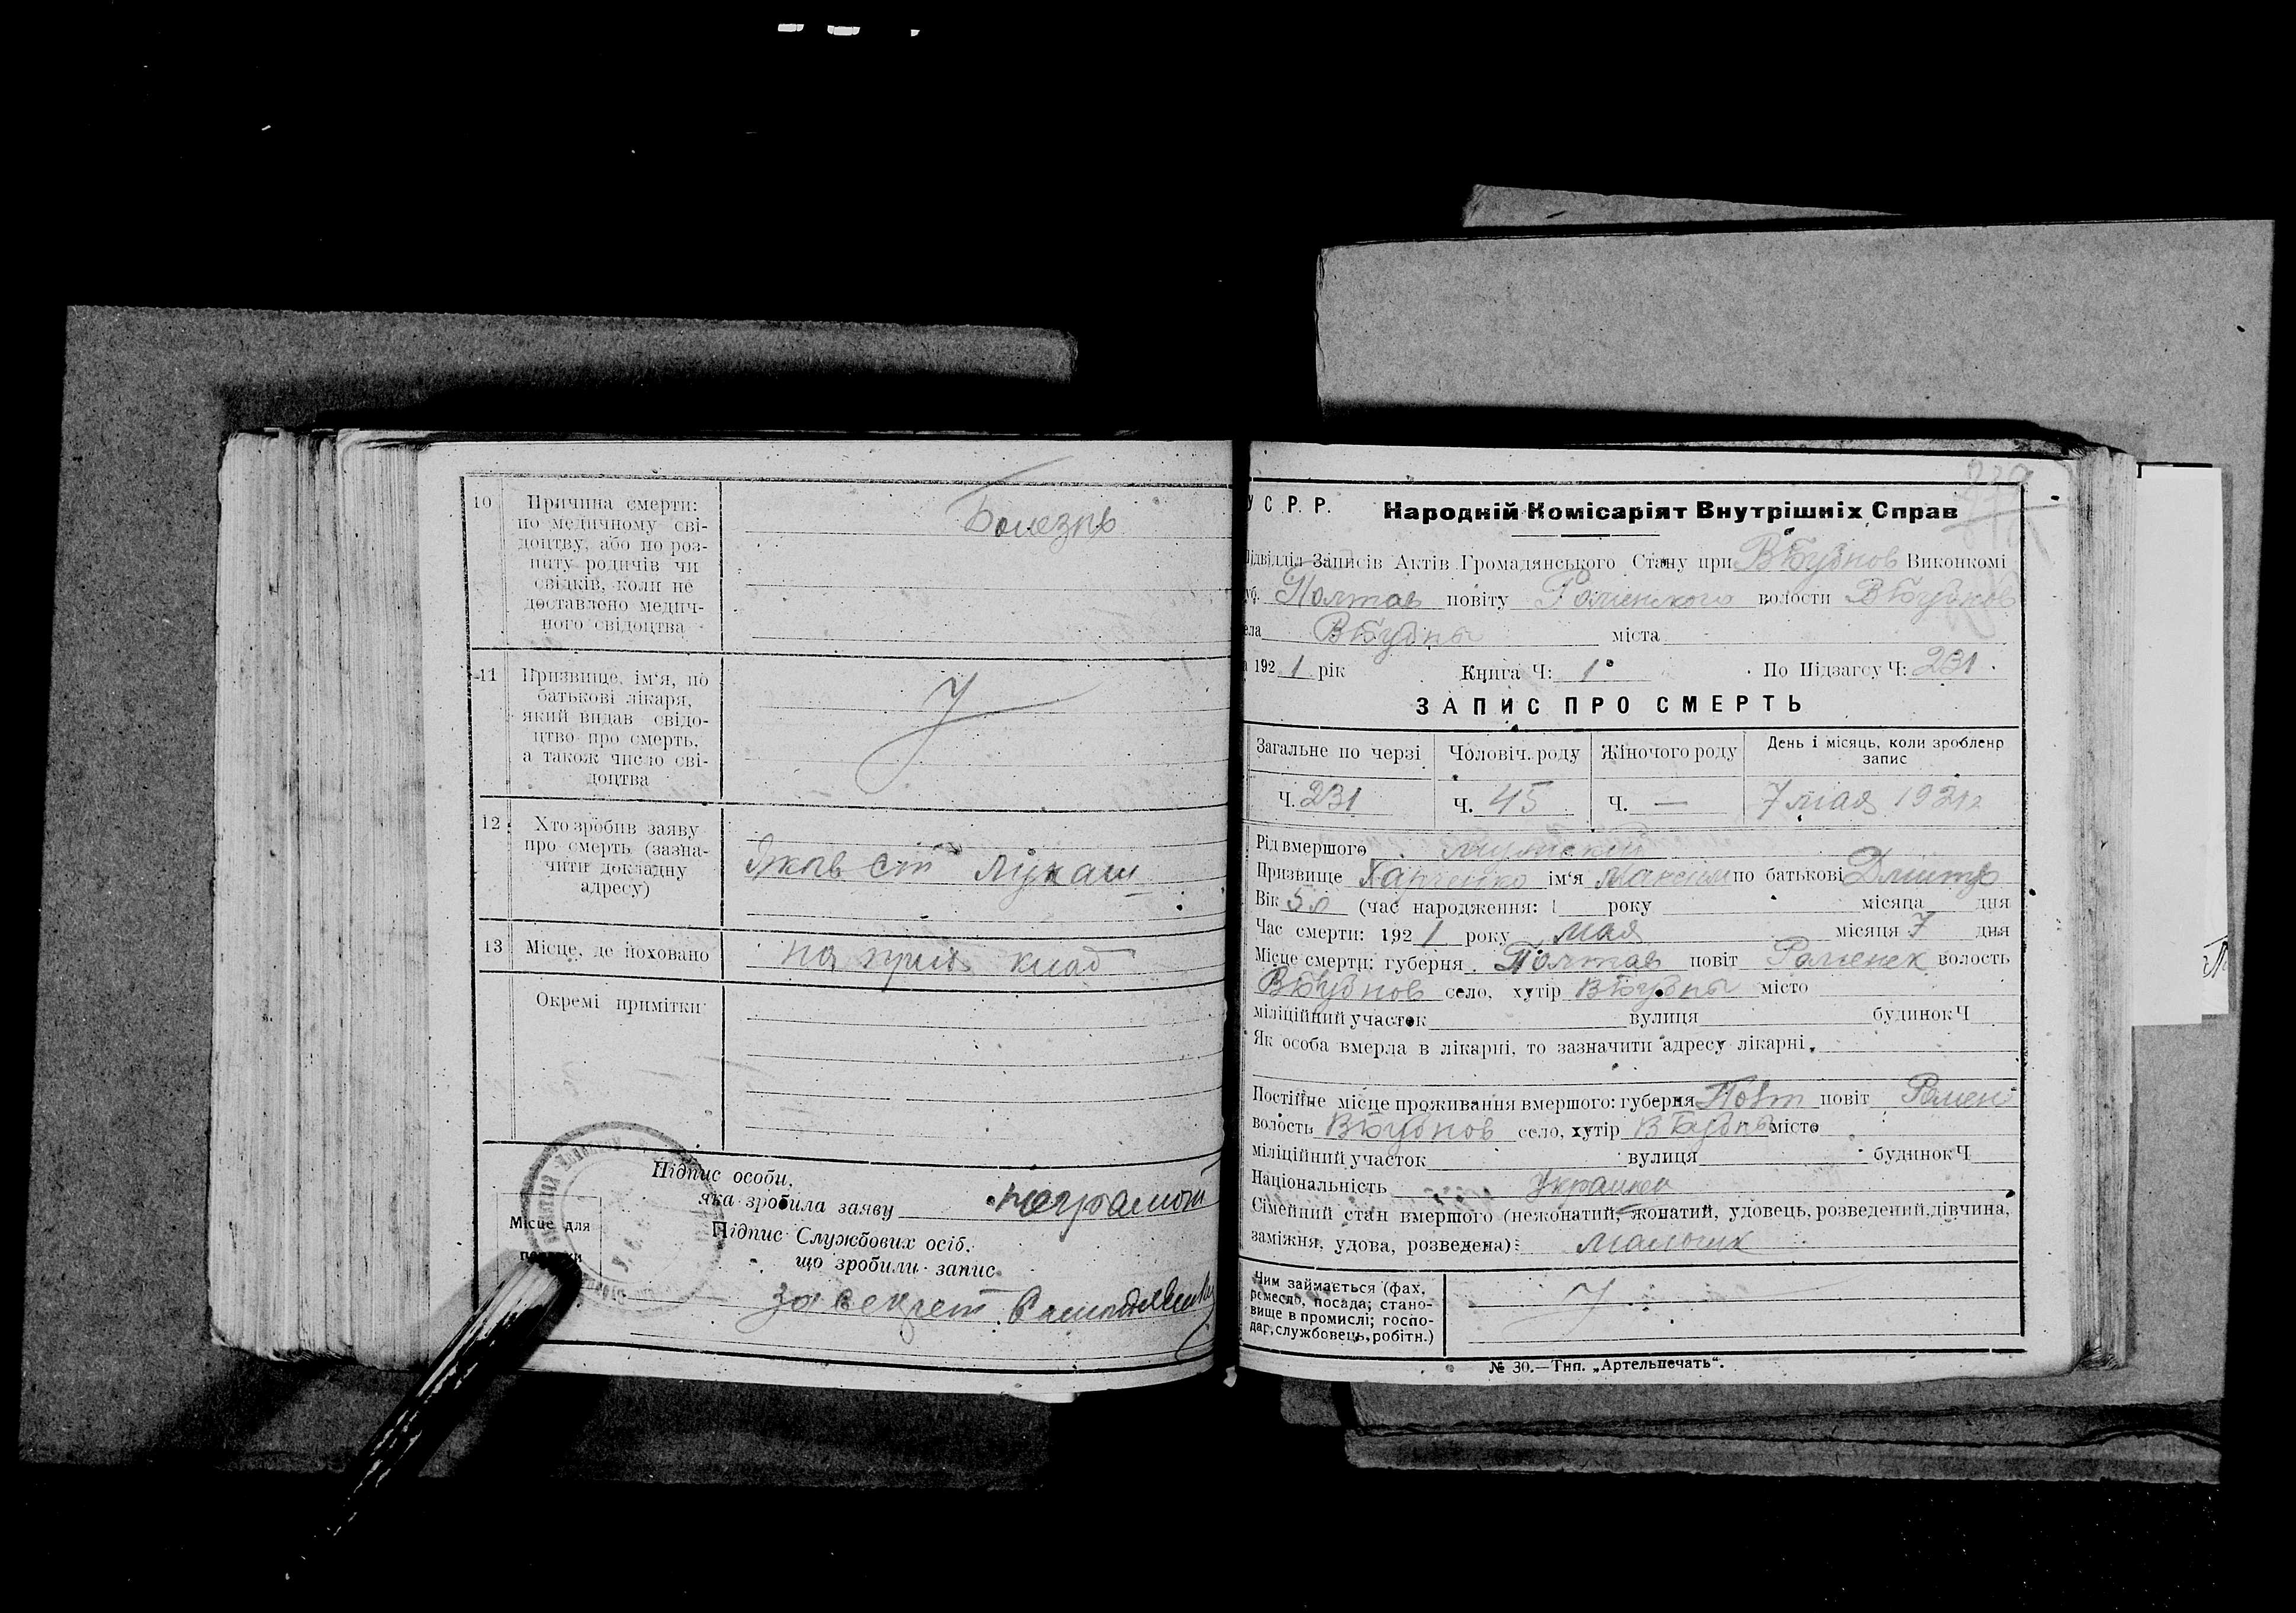 10 Причина смерти:
по медичному сві-
доцтву, або по роз-
питу родичів чи
свідків, коли не
доставлено медич-
ного свідоцтва
Болезнь
11 Призвище, ім'я, по
батькові лікаря,
який видав свідо-
цтво про смерть,
а також число сві-
доцтва
12 Хто зробив заяву
про смерть (зазна-
чити докладну
адресу)
Яков Лукаш
13 Місце, де поховано на прих клад
Окремі примітки
Підпис особи,
яка зробила заяву неграмот
Місце для
Підпис Службових осіб,
що зробили запис
за секрет
У С. Р. Р. Народній Комісаріят Внутрішніх Справ
Підвідділ Записів Актів Громадянського Стану при ВБубнов Виконкомі
губ. Полтав повіту Роменского волости ВБубнов
села ВБубны міста
1921 рік Книга Ч: 1 По Підзагсу Ч: 231
ЗАПИС ПРО СМЕРТЬ
Загальне по черзі Чоловіч. роду Жіночого роду День і місяць, коли зроблено
запис
Ч. 231 Ч. 45 Ч. — 7 мая 1921 г
Рід вмершого мужской
Призвище Харченко ім'я Максим по батькові Дмитр
Вік 5 л (час народження: 1 року місяца дня
Час смерти: 1921 року мая місяця 7 дня
Місце смерти: губерня Полтав повіт Роменск волость
ВБубнов село, хутір ВБубны місто
міліційний участок вулиця будинок Ч
Як особа вмерла в лікарні, то зазначити адресу лікарні
Постійне місце проживання вмершого: губерня Полт повіт Ромен
волость ВБубнов село, хутір ВБубны місто
міліційний участок вулиця будинок Ч
Національність Украинец
Сімейний стан вмершого (нежонатий, жонатий, удовець, розведений, дівчина,
заміжня, удова, розведена): мальчик
Чим займається (фах,
ремесло, посада; стано-
вище в промислі; госпо-
дар, службовець, робітн.)
№ 30.—Тип. „Артельпечать“.